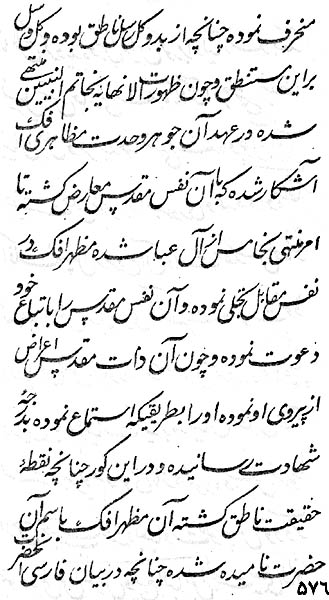 منحرف نموده چنانچه از بدو کل رسل ناطق بوده و کل رسل
بر این مستنطق و چون ظهورات الانهایه بخاتم النبیین منتهی
شده در عهد آن جوهر وحدت مظاهری افک
آشکار شده که با آن نفس مقدس معارض گشته تا
امر منتهی بخامس از آل عبا شده مظهر افک در
نفس مقابل تجلی نموده و آن نفس مقدس را باتباع خود
دعوت نموده و چون آن ذات مقدس اعراض
از پیروی او نموده او را بطریقیکه استماع نموده بدرجهٔ
شهادت رسانیده و در این کور چنانچه نقطهٔ
حقیقت ناطق گشته آن مظهر افک باسم آن
حضرت نامیده شده چنانچه در بیان فارسی آنحضرت
۵۷۶